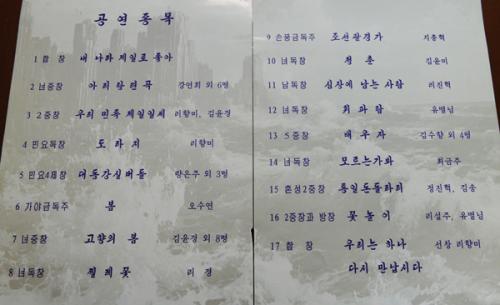 공연종목
1 합 창 내 나라 제일로 좋아
2 녀중창 아리랑련곡 강연희 외 6명
3 2중창 우리 민족 제일일세 리향미, 김윤경
4 민요독창 도라지 리향미
5 민요4제창 대동강실버들 량은주 외 3명
6 가야금독주 봄 오수연
7 녀중창 고향의 봄 김윤경 외 8명
8 녀독창 찔레꽃 리 경
9 손풍금독주 조선팔경가 지충혁
10 녀독창 청춘 김윤미
11 남독창 심장에 남는 사람 리진혁
12 녀독창 휘파람 유별님
13 5중창 배우자 김수향 외 4명
14 녀독창 모르는가봐 최금주
15 혼성2중창 통일돈돌라리 정진혁, 김송
16 2중창과 방창 꽃놀이 리설주, 유별님
17 합 창 우리는 하나 선창 리향미
다시 만납시다